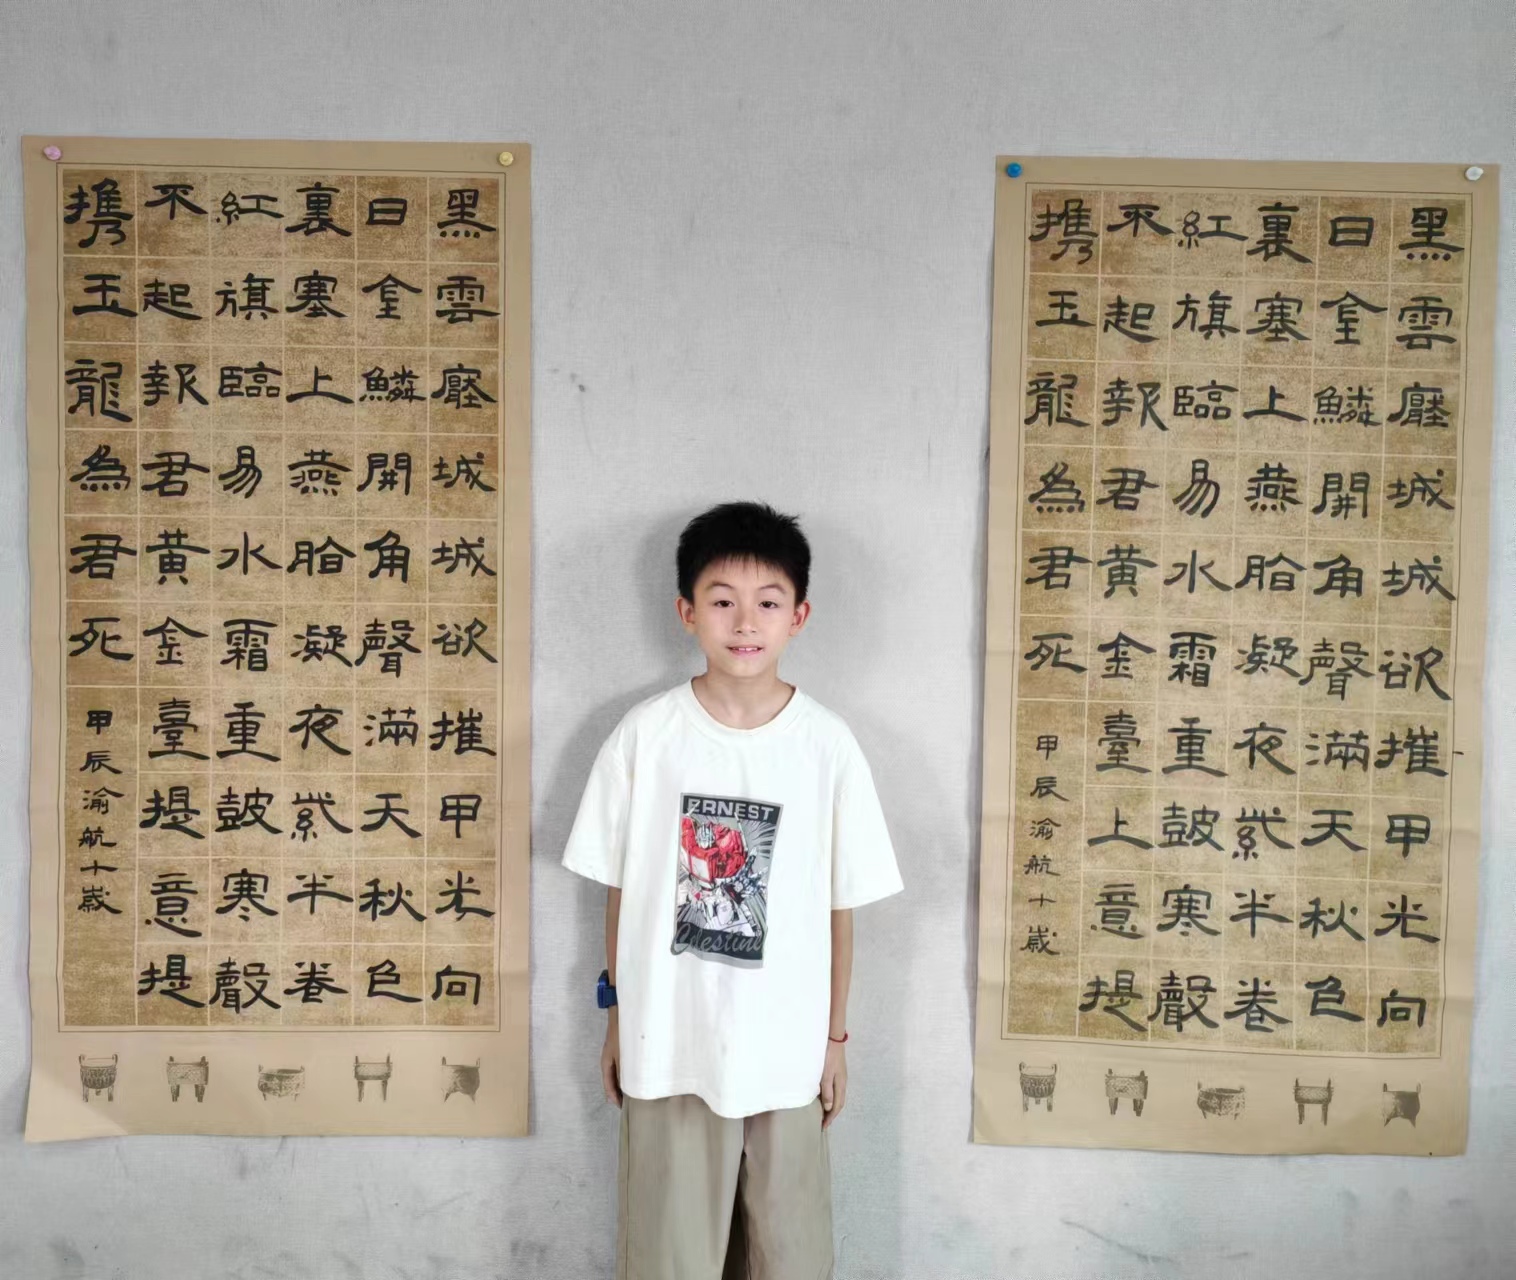 黑雲壓城城欲摧甲光向
日金鱗開角聲滿天秋色
裏塞上燕脂凝夜紫半卷
紅旗臨易水霜重鼓寒聲
不起報君黃金臺提意提
携玉龍為君死
甲辰渝航十歲
黑雲壓城城欲摧甲光向
日金鱗開角聲滿天秋色
裏塞上燕脂凝夜紫半卷
紅旗臨易水霜重鼓寒聲
不起報君黃金臺上意提
携玉龍為君死
甲辰渝航十歲
ERNEST